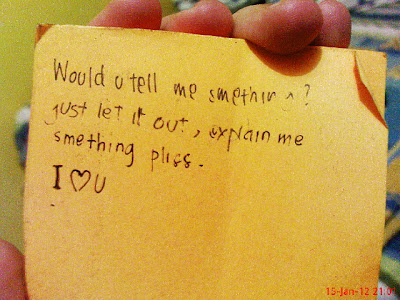 Would u tell me smething?
just let it out, explain me
smething pliss.
I ♡ U
15-Jan-12 21:01